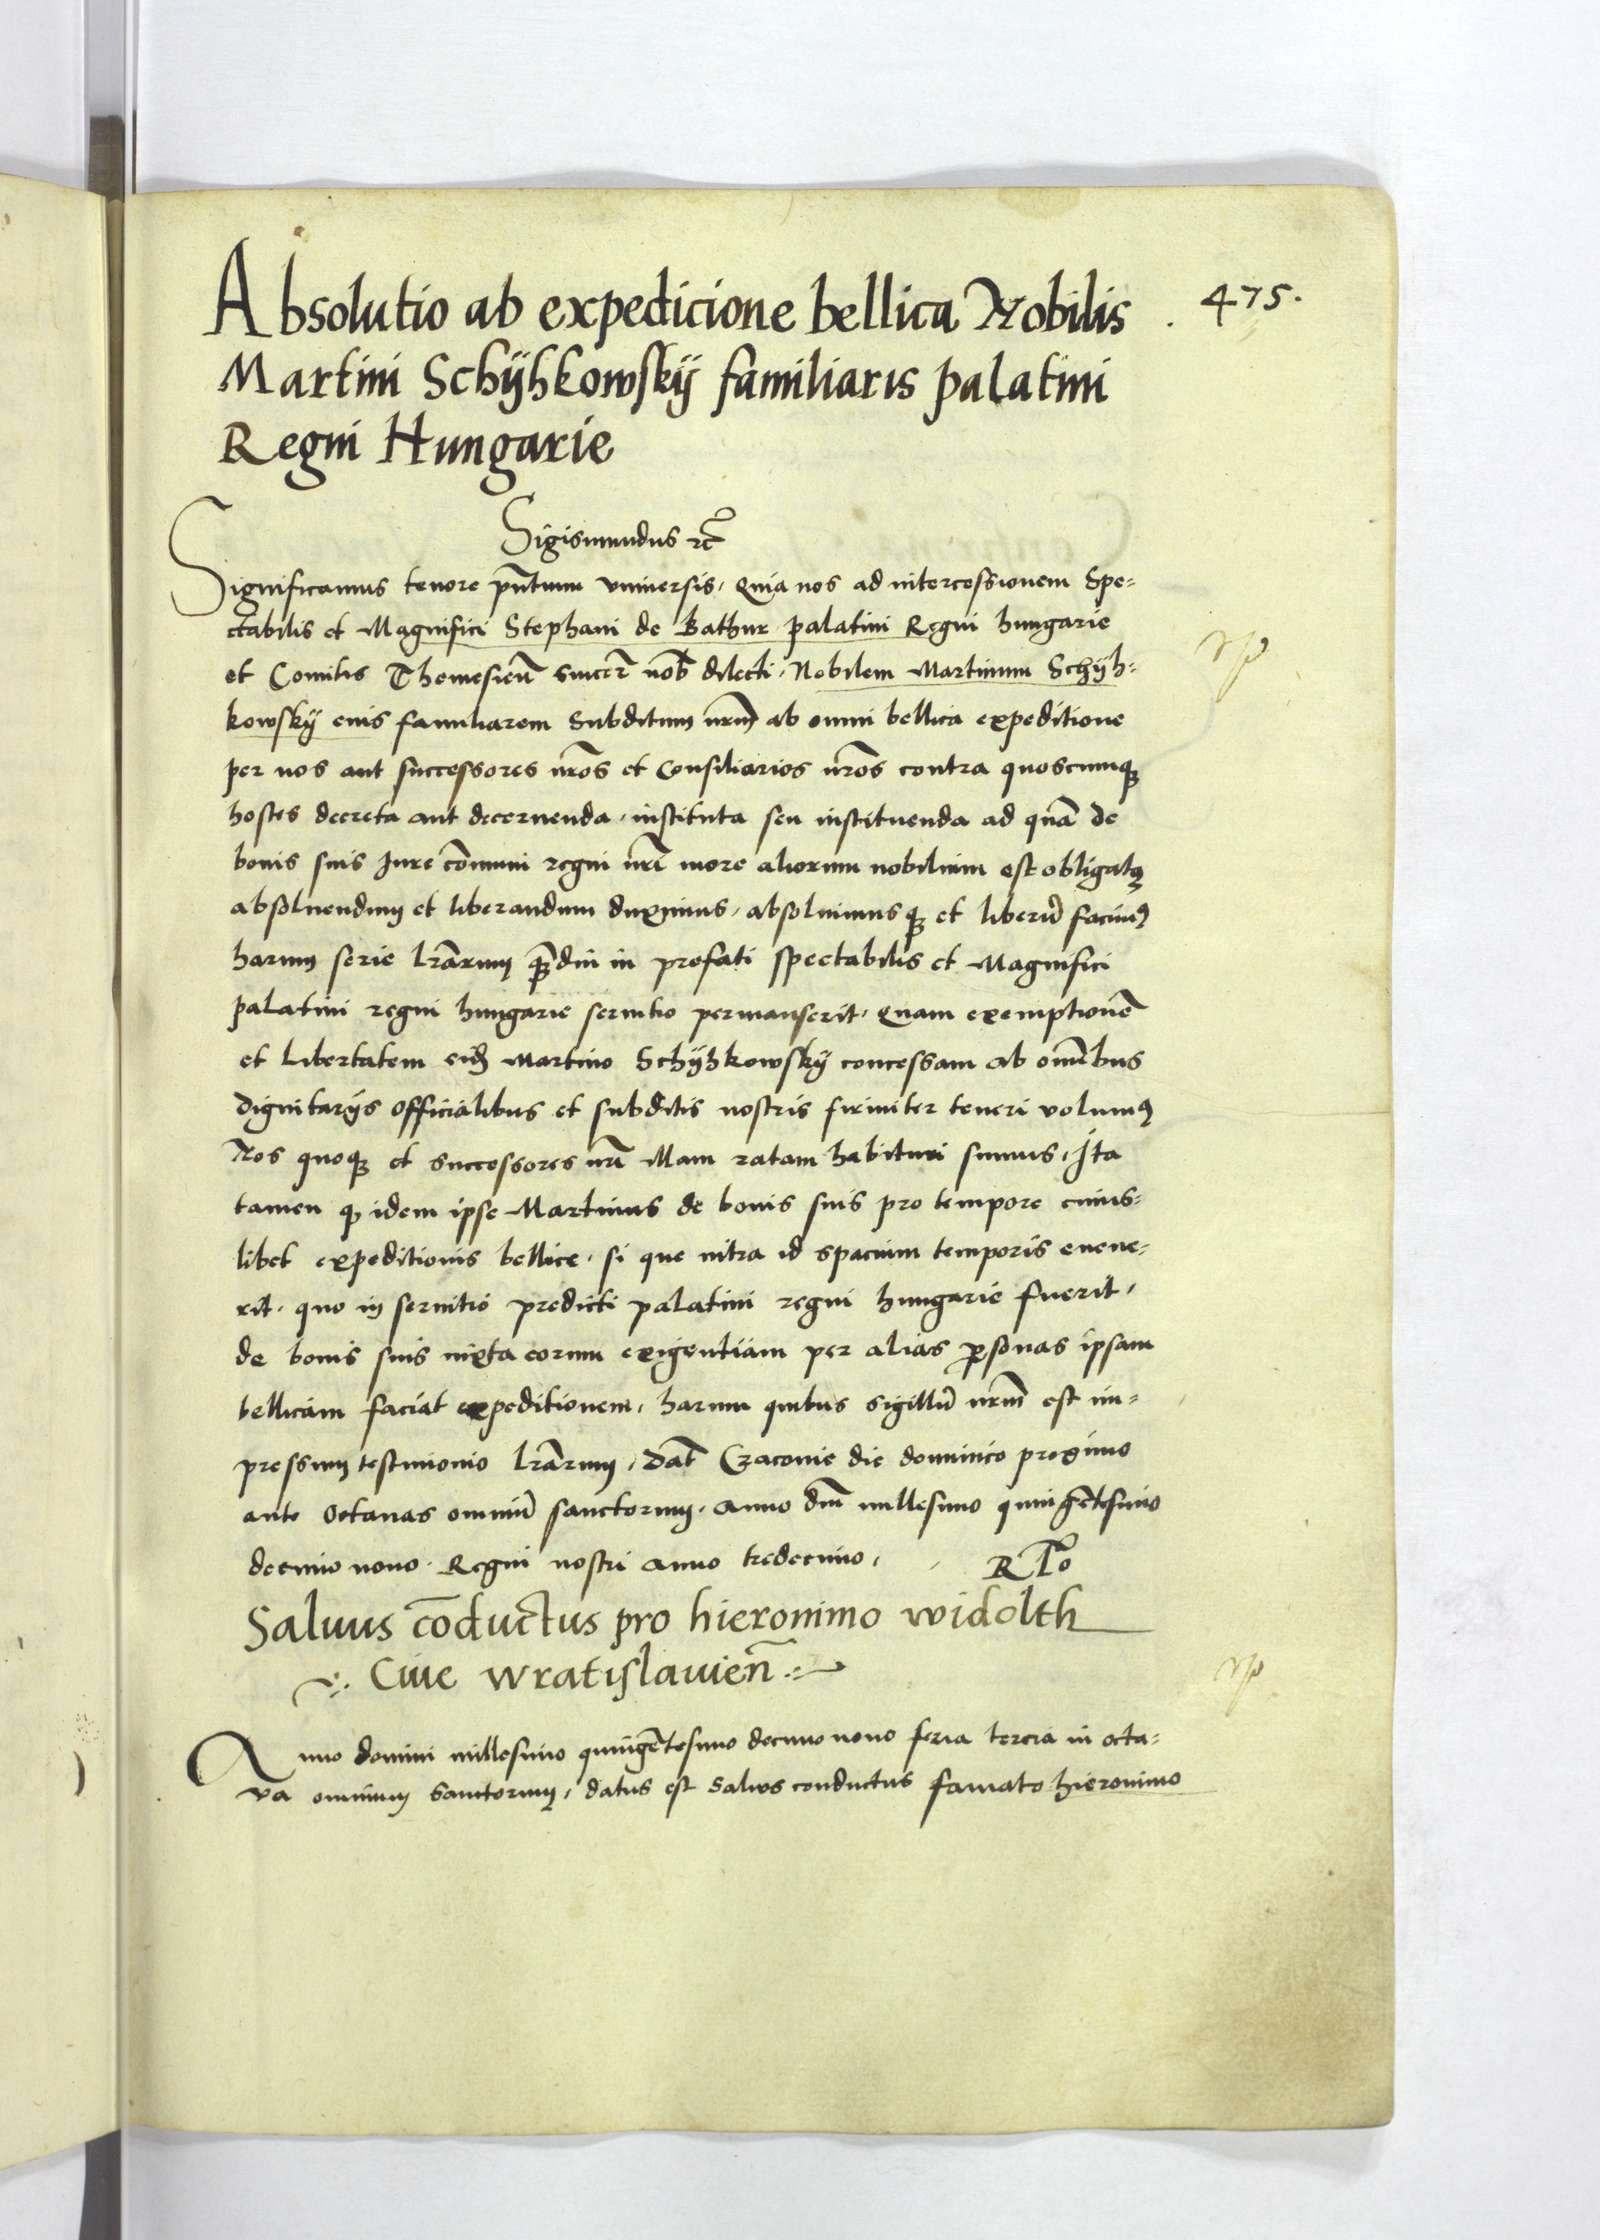 Absolutio ab expedicione bellica Nobilis
475.
Martini Schÿhkowskÿ familiaris palatini
Regni Hungarie
Sigismundus rc̄
Significamus tenore pn̄tium vniuersis, Quia nos ad intercessionem Spe-
ctabilis et Magnifici Stephani de Bathur palatini Regni hungarie
et Comitis Themesien̄ sincer̄ nob̄ dilecti, Nobilem Martinum Schÿh-
kowskÿ eius familiarem Subditum nr̄m ab omni bellica expeditione
per nos aut successores nr̄os et Consiliarios nr̄os contra quoscumqꝫ
hostes decreta aut decernenda, instituta seu instituenda ad quā de
bonis suis Iure cōmuni regni nr̄i more aliorum nobilium est obligatꝰ
absoluendum et liberandum duximus, absoluimusqꝫ et liberū facimꝰ
harum serie lr̄arum qꝫdiu in prefati spectabilis et Magnifici
palatini regni hungarie seruitio permanserit, Quam exemptionē
et libertatem eidē Martino Schÿhkowskÿ concessam ab om̄ibus
dignitarijs officialibus et subditis nostris firmiter teneri volumꝰ
Nos quoqꝫ et successores nr̄i illam ratam habituri sumus, Ita
tamen qꝫ idem ipse Martinus de bonis suis pro tempore cuius-
libet expeditionis bellice, si que intra id spacium temporis euene-
rit, quo in seruitio predicti palatini regni hungarie fuerit,
de bonis suis iuxta eorum exigentiam per alias ꝑsonas ipsam
bellicam faciat expeditionem, harum quibus sigillū nr̄m est im-
pressum testimonio lr̄arum, Dat̄ Cracouie die dominico proximo
ante Octauas omniū sanctorum, Anno dn̄i millesimo quingētesimo
decimo nono. Regni nostri anno tredecimo,
Saluus cōductus pro hieronimo widolth
Ciue wratislauien̄
Anno domini millesimo quingētesimo decimo nono feria tercia in octa-
va omnium Sanctorum, datus est saluos conductus famato hieronimo